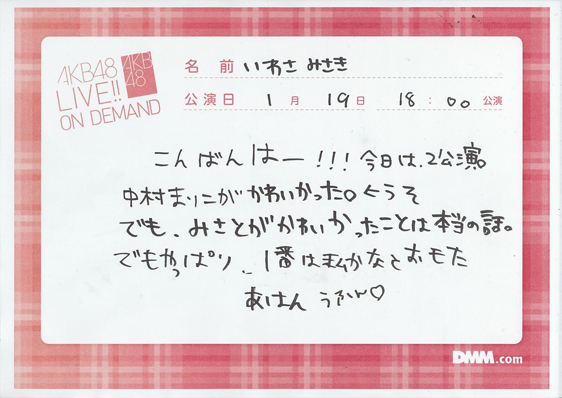 AKB48
LIVE!!
ON DEMAND
AKB
48
名前 いわさ みさき
公演日 1月 19日 18:00 公演
こんばんはー!!!今日は、2公演。
中村まりこがかわいかった。←うそ
でも、みさとがかわいかったことは本当の話。
でもやっぱり、1番は私かなとおもた
あはん うふん♡
DMM.com